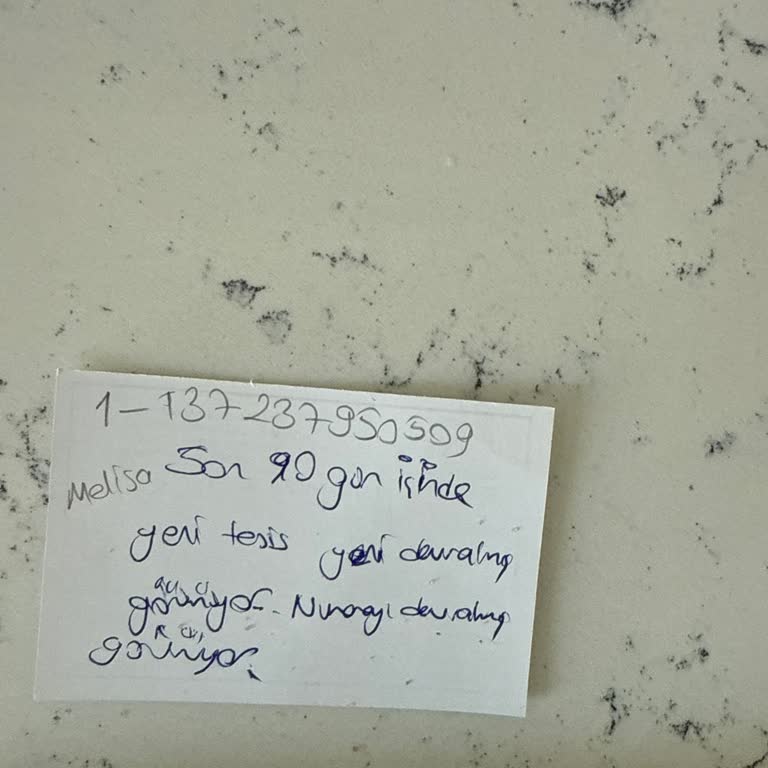 1-137237950509
Melisa Son 90 gün içinde
yeni tesis yeni devralmış
görünüyor. Numarayı devralmış
görünüyor.